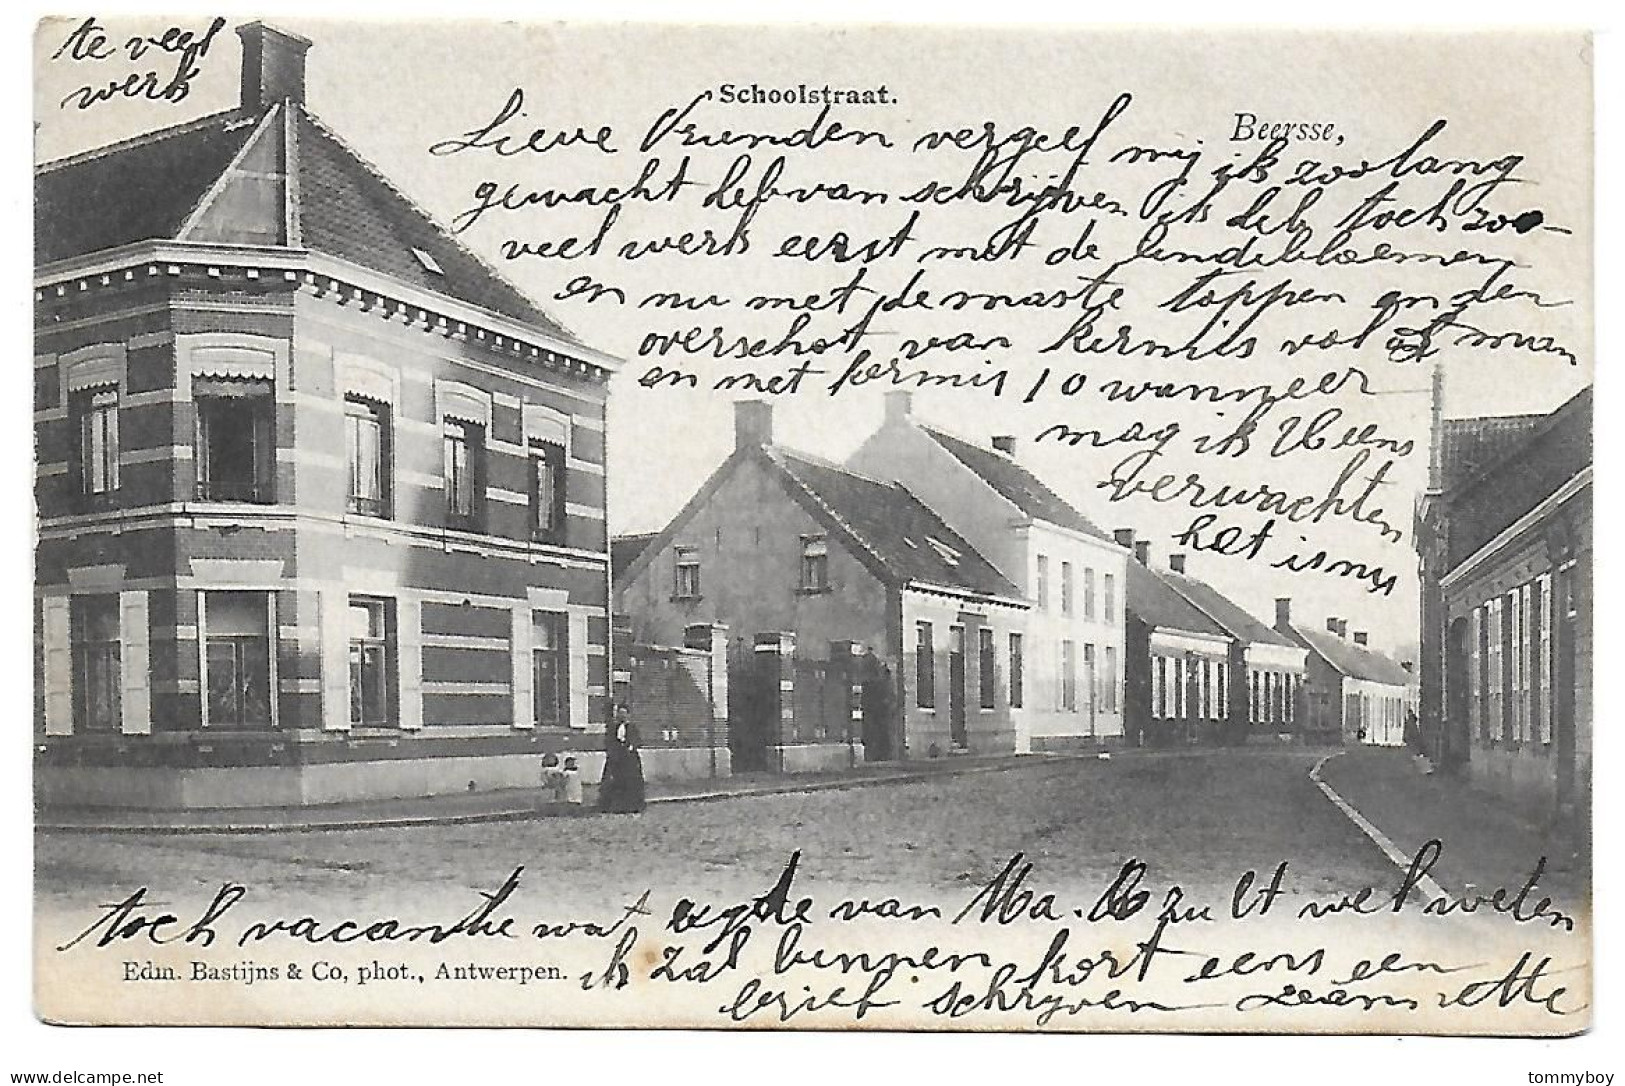 te veel
werk
Schoolstraat.
Beersse,
Lieve Vrienden vergeef mij ik zoolang
gewacht heb van schrijven ik heb toch zoo-
veel werk eerst met de lindebloemen
en nu met de maste toppen en den
overschot van kermis vol
en met kermis 10 wanneer
mag ik U eens
verwachten
het is nu
toch vacantie wat zegde van Ma. zult wel weten
Edm. Bastijns & Co, phot., Antwerpen.
ik zal binnen kort eens een
brief schrijven
delcampe.net
tommyboy